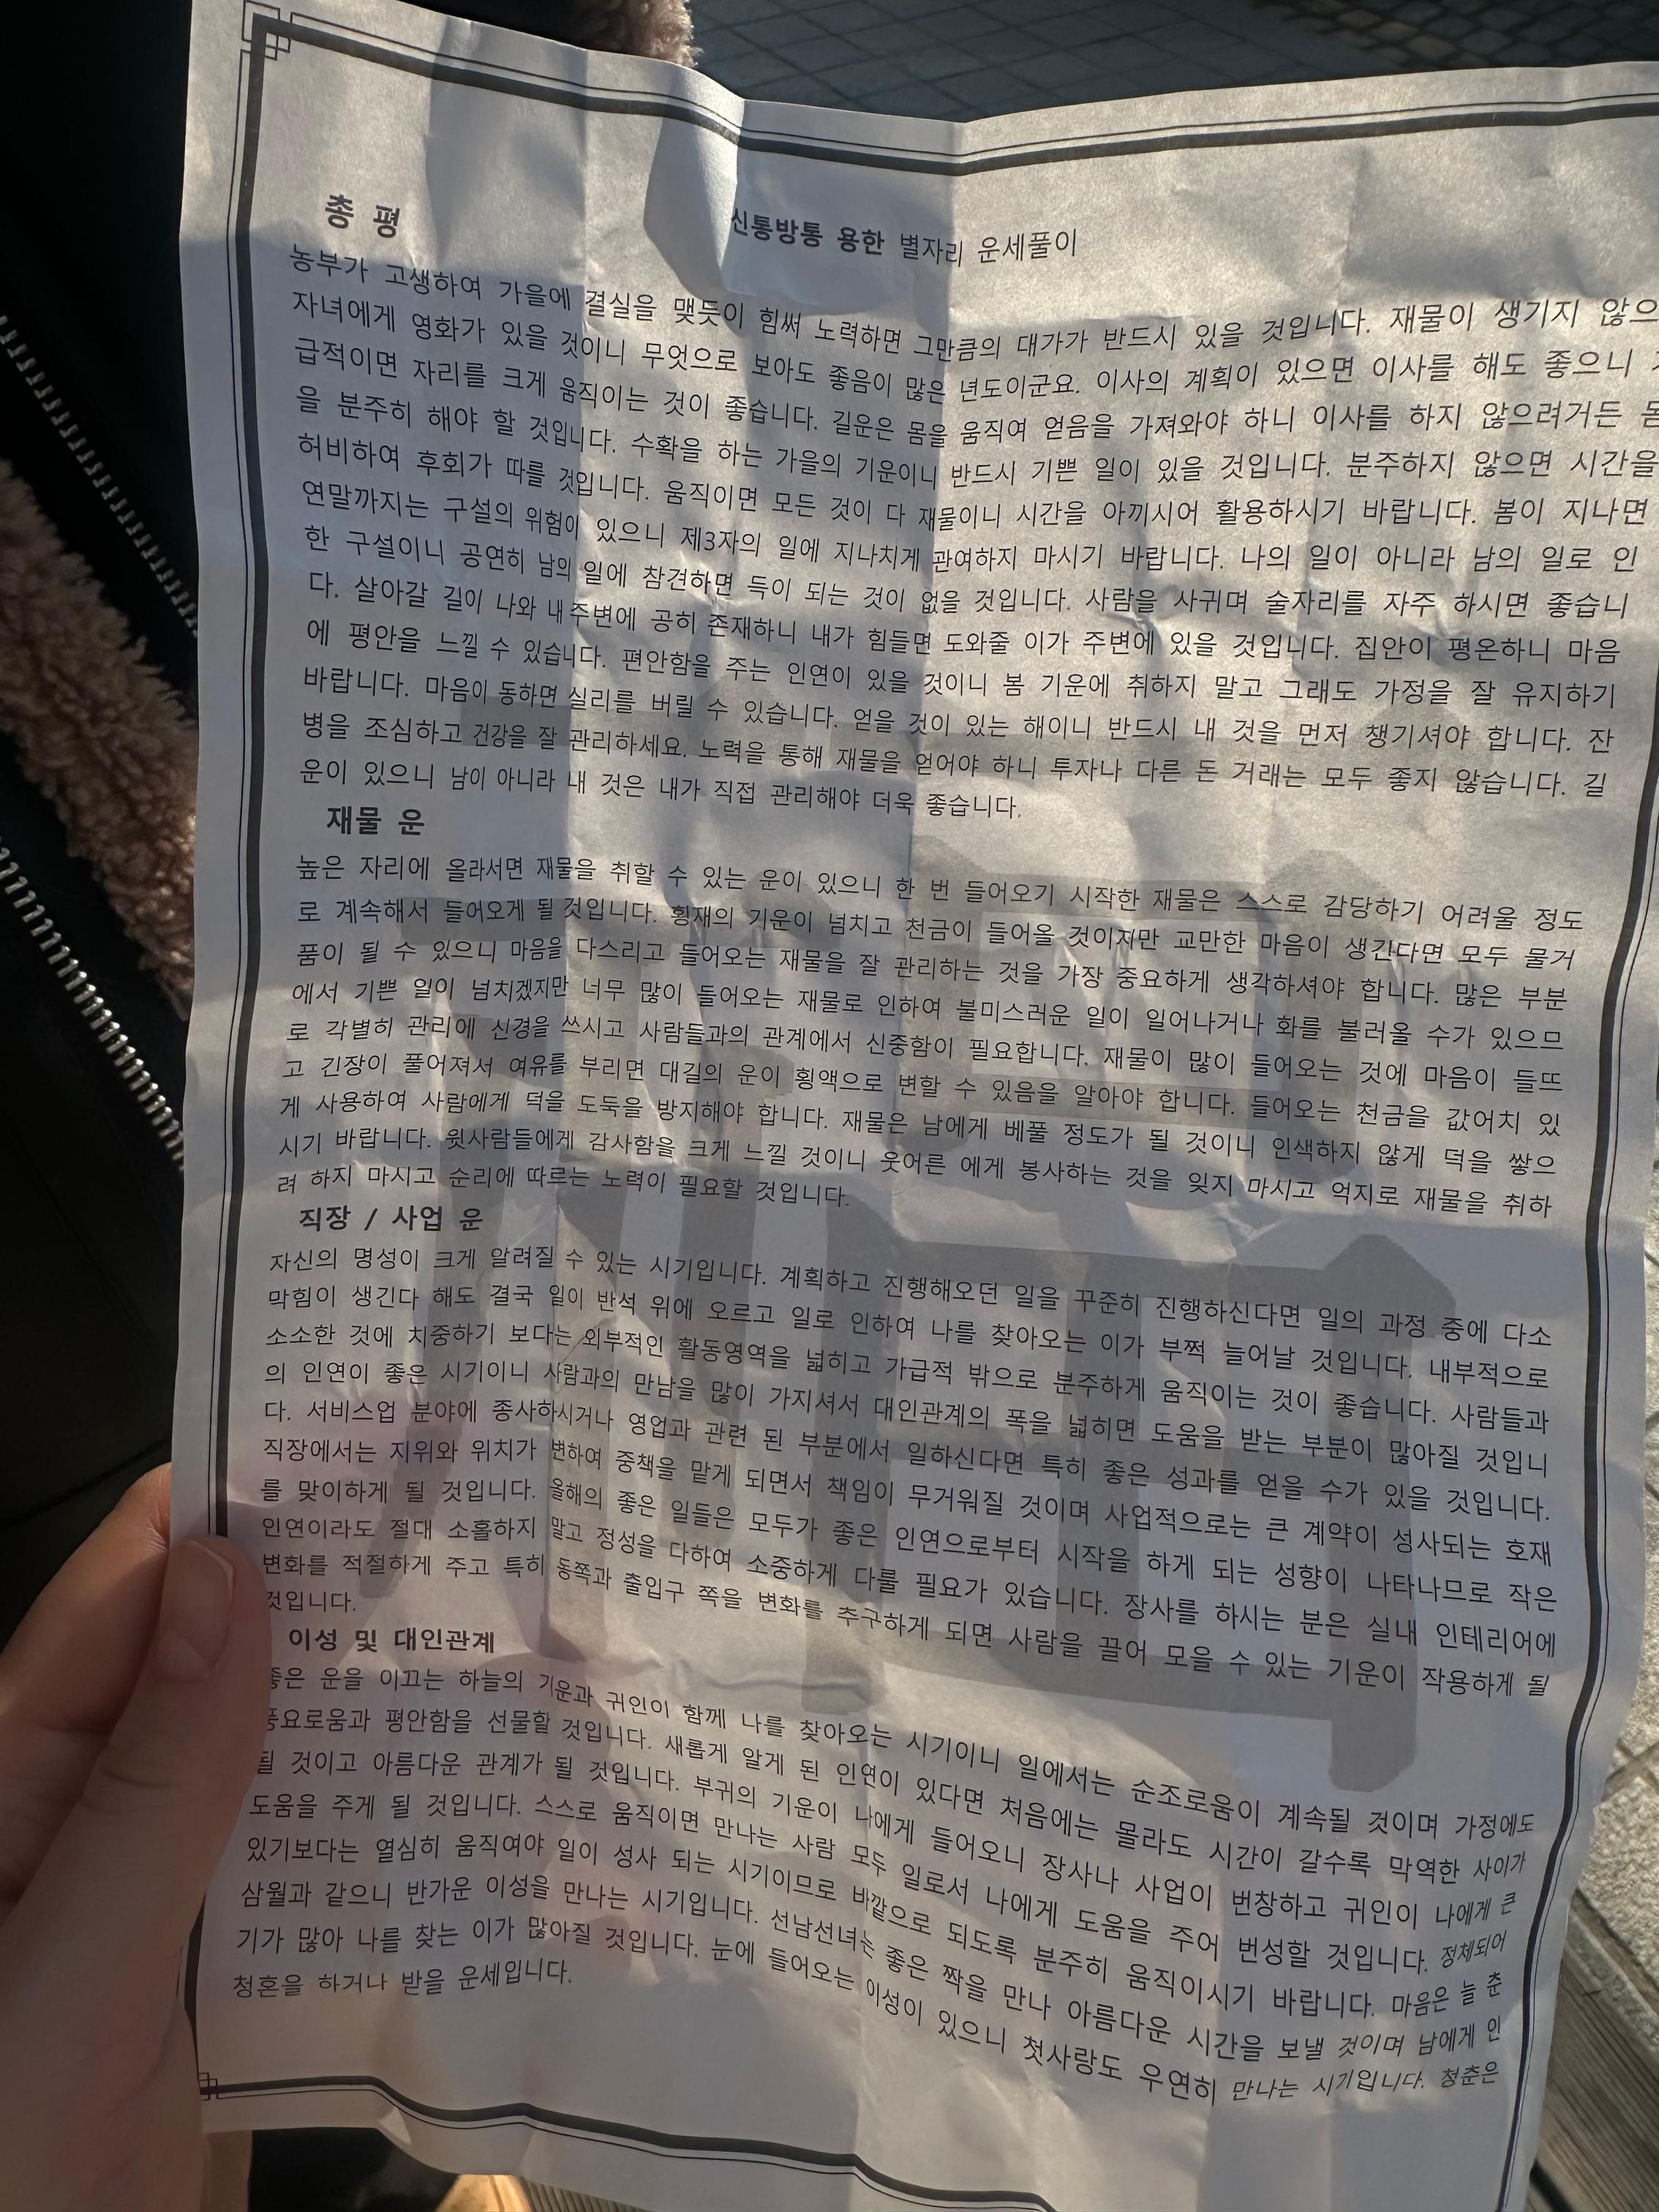 총 평
신통방통 용한 별자리 운세풀이
농부가 고생하여 가을에 결실을 맺듯이 힘써 노력하면 그만큼의 대가가 반드시 있을 것입니다. 재물이 생기지 않으
자녀에게 영화가 있을 것이니 무엇으로 보아도 좋음이 많은 년도이군요. 이사의 계획이 있으면 이사를 해도 좋으니
급적이면 자리를 크게 움직이는 것이 좋습니다. 길운은 몸을 움직여 얻음을 가져와야 하니 이사를 하지 않으려거든 몸
을 분주히 해야 할 것입니다. 수확을 하는 가을의 기운이니 반드시 기쁜 일이 있을 것입니다. 분주하지 않으면 시간을
허비하여 후회가 따를 것입니다. 움직이면 모든 것이 다 재물이니 시간을 아끼시어 활용하시기 바랍니다. 봄이 지나면
연말까지는 구설의 위험이 있으니 제3자의 일에 지나치게 관여하지 마시기 바랍니다. 나의 일이 아니라 남의 일로 인
한 구설이니 공연히 남의 일에 참견하면 득이 되는 것이 없을 것입니다. 사람을 사귀며 술자리를 자주 하시면 좋습니
다. 살아갈 길이 나와 내 주변에 공히 존재하니 내가 힘들면 도와줄 이가 주변에 있을 것입니다. 집안이 평온하니 마음
에 평안을 느낄 수 있습니다. 편안함을 주는 인연이 있을 것이니 봄 기운에 취하지 말고 그래도 가정을 잘 유지하기
바랍니다. 마음이 동하면 실리를 버릴 수 있습니다. 얻을 것이 있는 해이니 반드시 내 것을 먼저 챙기셔야 합니다. 잔
병을 조심하고 건강을 잘 관리하세요. 노력을 통해 재물을 얻어야 하니 투자나 다른 돈 거래는 모두 좋지 않습니다. 길
운이 있으니 남이 아니라 내 것은 내가 직접 관리해야 더욱 좋습니다.
재물 운
높은 자리에 올라서면 재물을 취할 수 있는 운이 있으니 한 번 들어오기 시작한 재물은 스스로 감당하기 어려울 정도
로 계속해서 들어오게 될 것입니다. 횡재의 기운이 넘치고 천금이 들어올 것이지만 교만한 마음이 생긴다면 모두 물거
품이 될 수 있으니 마음을 다스리고 들어오는 재물을 잘 관리하는 것을 가장 중요하게 생각하셔야 합니다. 많은 부분
에서 기쁜 일이 넘치겠지만 너무 많이 들어오는 재물로 인하여 불미스러운 일이 일어나거나 화를 불러올 수가 있으므
로 각별히 관리에 신경을 쓰시고 사람들과의 관계에서 신중함이 필요합니다. 재물이 많이 들어오는 것에 마음이 들뜨
고 긴장이 풀어져서 여유를 부리면 대길의 운이 횡액으로 변할 수 있음을 알아야 합니다. 들어오는 천금을 값어치 있
게 사용하여 사람에게 덕을 도둑을 방지해야 합니다. 재물은 남에게 베풀 정도가 될 것이니 인색하지 않게 덕을 쌓으
시기 바랍니다. 윗사람들에게 감사함을 크게 느낄 것이니 웃어른 에게 봉사하는 것을 잊지 마시고 억지로 재물을 취하
려 하지 마시고 순리에 따르는 노력이 필요할 것입니다.
직장 / 사업 운
자신의 명성이 크게 알려질 수 있는 시기입니다. 계획하고 진행해오던 일을 꾸준히 진행하신다면 일의 과정 중에 다소
막힘이 생긴다 해도 결국 일이 반석 위에 오르고 일로 인하여 나를 찾아오는 이가 부쩍 늘어날 것입니다. 내부적으로
소소한 것에 치중하기 보다는 외부적인 활동영역을 넓히고 가급적 밖으로 분주하게 움직이는 것이 좋습니다. 사람들과
의 인연이 좋은 시기이니 사람과의 만남을 많이 가지셔서 대인관계의 폭을 넓히면 도움을 받는 부분이 많아질 것입니
다. 서비스업 분야에 종사하시거나 영업과 관련 된 부분에서 일하신다면 특히 좋은 성과를 얻을 수가 있을 것입니다.
직장에서는 지위와 위치가 변하여 중책을 맡게 되면서 책임이 무거워질 것이며 사업적으로는 큰 계약이 성사되는 호재
를 맞이하게 될 것입니다. 올해의 좋은 일들은 모두가 좋은 인연으로부터 시작을 하게 되는 성향이 나타나므로 작은
인연이라도 절대 소홀하지 말고 정성을 다하여 소중하게 다룰 필요가 있습니다. 장사를 하시는 분은 실내 인테리어에
변화를 적절하게 주고 특히 동쪽과 출입구 쪽을 변화를 추구하게 되면 사람을 끌어 모을 수 있는 기운이 작용하게 될
것입니다.
이성 및 대인관계
좋은 운을 이끄는 하늘의 기운과 귀인이 함께 나를 찾아오는 시기이니 일에서는 순조로움이 계속될 것이며 가정에도
풍요로움과 평안함을 선물할 것입니다. 새롭게 알게 된 인연이 있다면 처음에는 몰라도 시간이 갈수록 막역한 사이가
될 것이고 아름다운 관계가 될 것입니다. 부귀의 기운이 나에게 들어오니 장사나 사업이 번창하고 귀인이 나에게 큰
도움을 주게 될 것입니다. 스스로 움직이면 만나는 사람 모두 일로서 나에게 도움을 주어 번성할 것입니다. 정체되어
있기보다는 열심히 움직여야 일이 성사 되는 시기이므로 바깥으로 되도록 분주히 움직이시기 바랍니다. 마음은 늘 춘
삼월과 같으니 반가운 이성을 만나는 시기입니다. 선남선녀는 좋은 짝을 만나 아름다운 시간을 보낼 것이며 남에게 인
기가 많아 나를 찾는 이가 많아질 것입니다. 눈에 들어오는 이성이 있으니 첫사랑도 우연히 만나는 시기입니다. 청춘은
청혼을 하거나 받을 운세입니다.